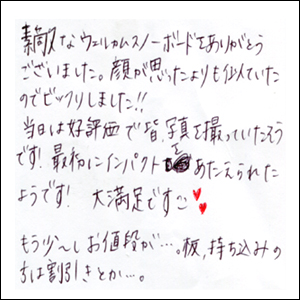 素敵なウェルカムスノーボードをありがとう
ございました。顔が思ったよりも似ていた
のでビックリしました!!
当日は好評価で皆、写真を撮っていたそう
です!最初にインパクトをあたえられた
ようです! 大満足です♥♥
もう少〜しお値段が…。板,持ち込みの
方は割引きとか…。